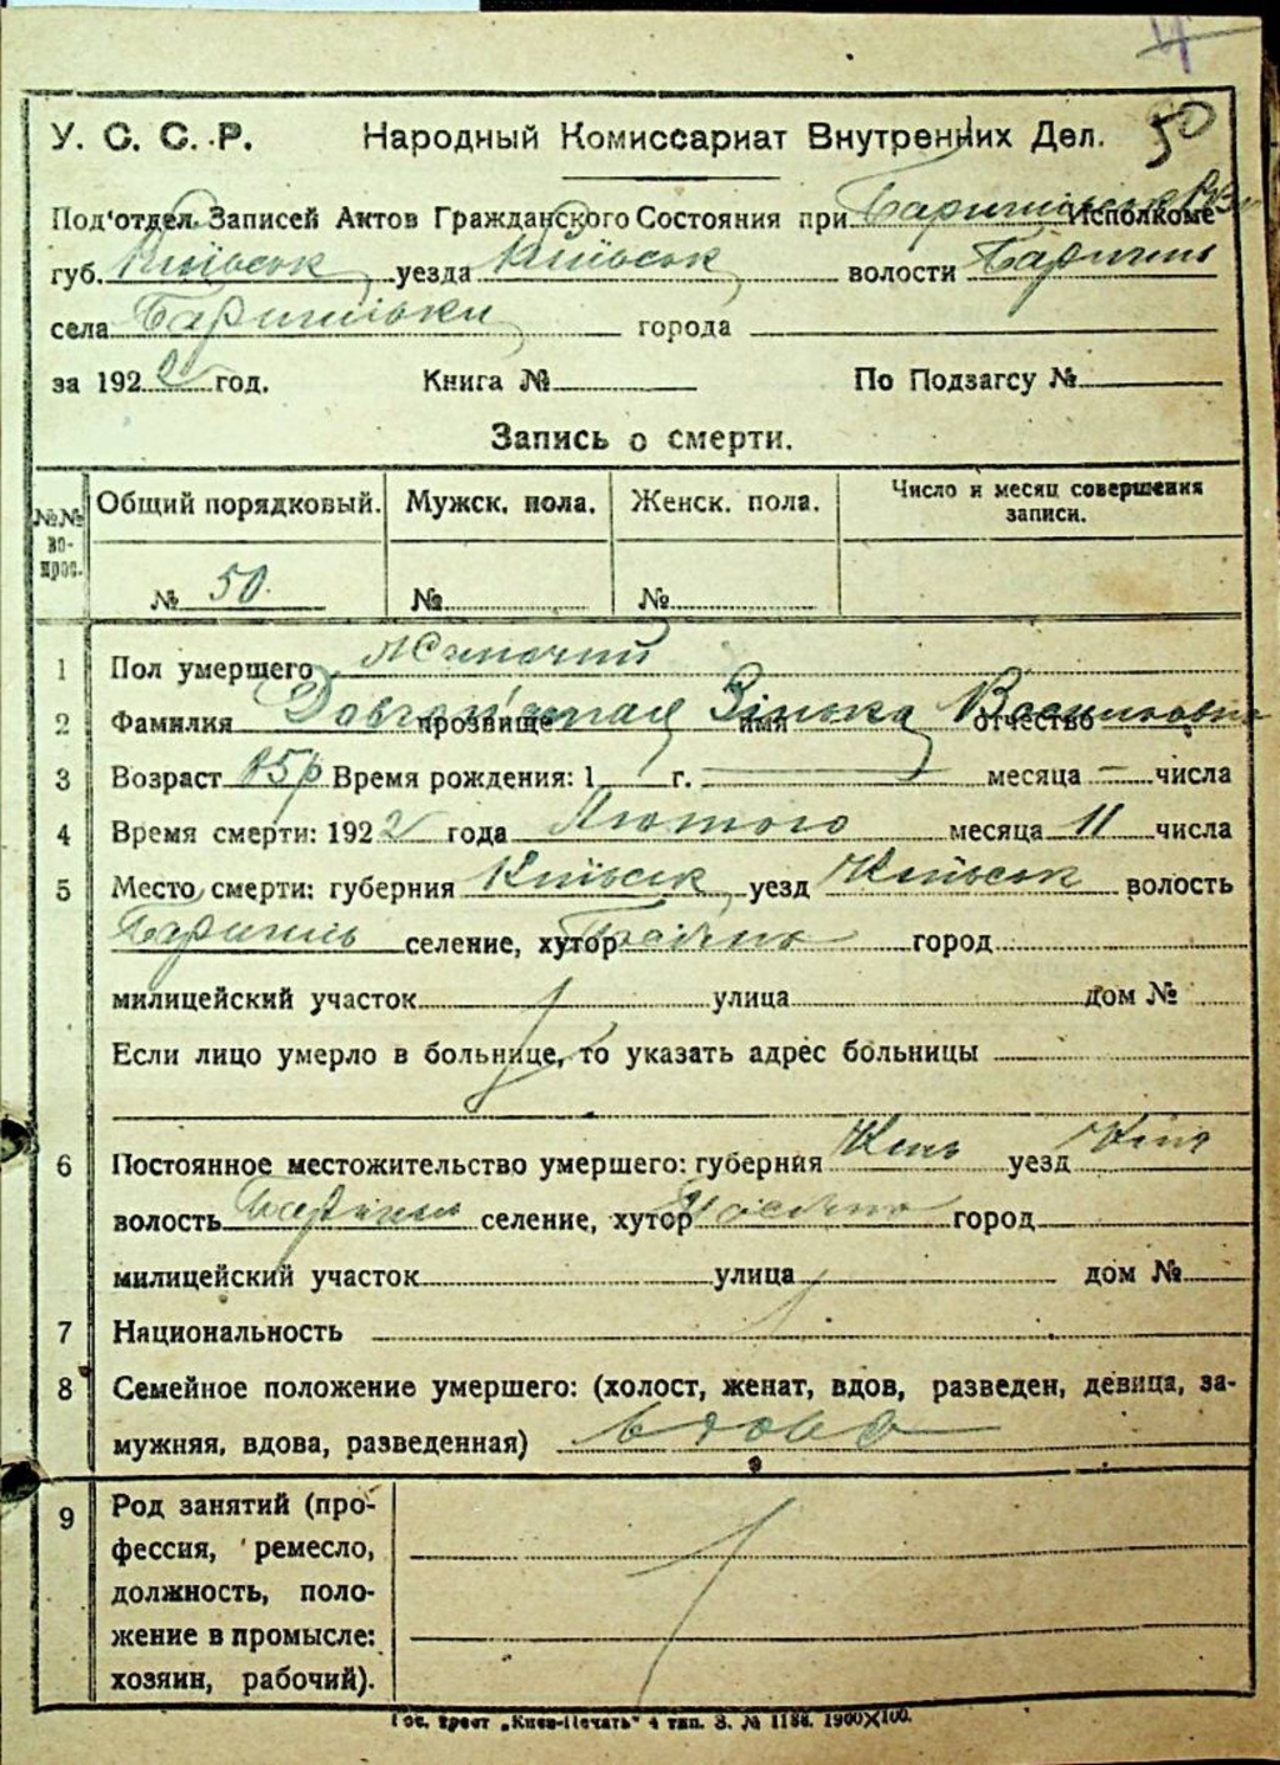 4
У. С. С. Р. Народный Комиссариат Внутренних Дел. 50
Под'отдел Записей Актов Гражданского Состояния при Исполкоме
губ. Київськ уезда Київськ волости Баришпіль
села города
за 1922 год. Книга № По Подзагсу №
Запись о смерти.
№№ вопрос. Общий порядковый. Мужск. пола. Женск. пола. Число и месяц совершения записи.
№ 50. № №
1 Пол умершего Жіночий
2 Фамилия прозвище имя Зінька отчество
3 Возраст 85р Время рождения: 1 г. месяца — числа
4 Время смерти: 1922 года Лютого месяца 11 числа
5 Место смерти: губерния Київськ уезд Київськ волость
селение, хутор город
милицейский участок улица дом №
Если лицо умерло в больнице, то указать адрес больницы
6 Постоянное местожительство умершего: губерния Київ уезд Київ
волость селение, хутор город
милицейский участок улица дом №
7 Национальность
8 Семейное положение умершего: (холост, женат, вдов, разведен, девица, за-
мужняя, вдова, разведенная) вдова
9 Род занятий (про-
фессия, ремесло,
должность, поло-
жение в промысле:
хозяин, рабочий).
Гос. трест „Киев-Печать" 4 тип. З. № 1188. 1900×100.